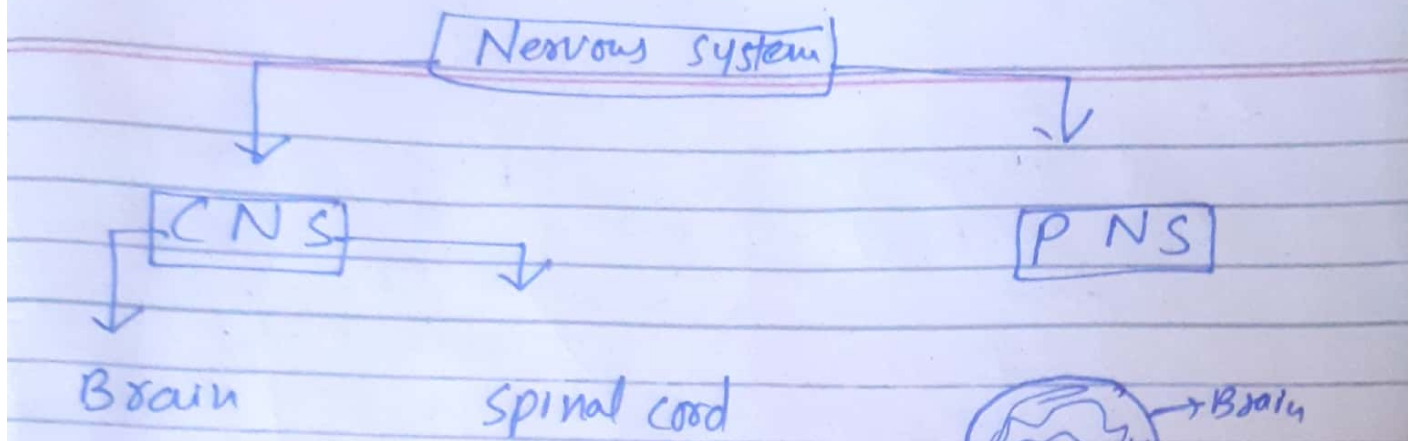 Nervous system
CNS
PNS
Brain
spinal cord
Brain